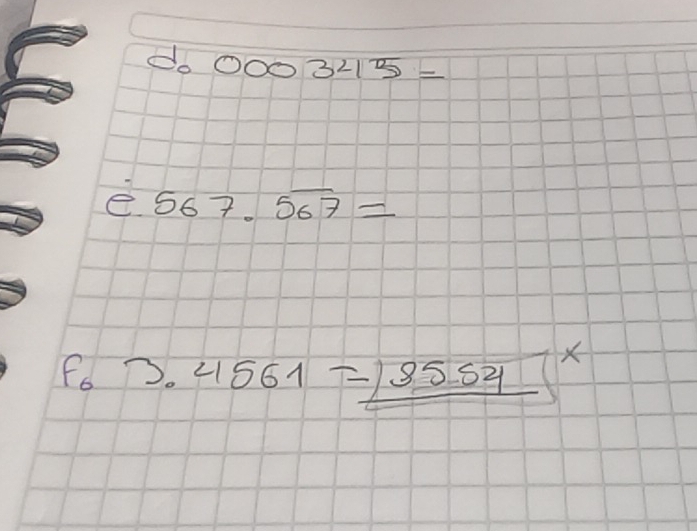 d. 0003415 =
e. 567.567 =
f. 3.4561 = 3554 x